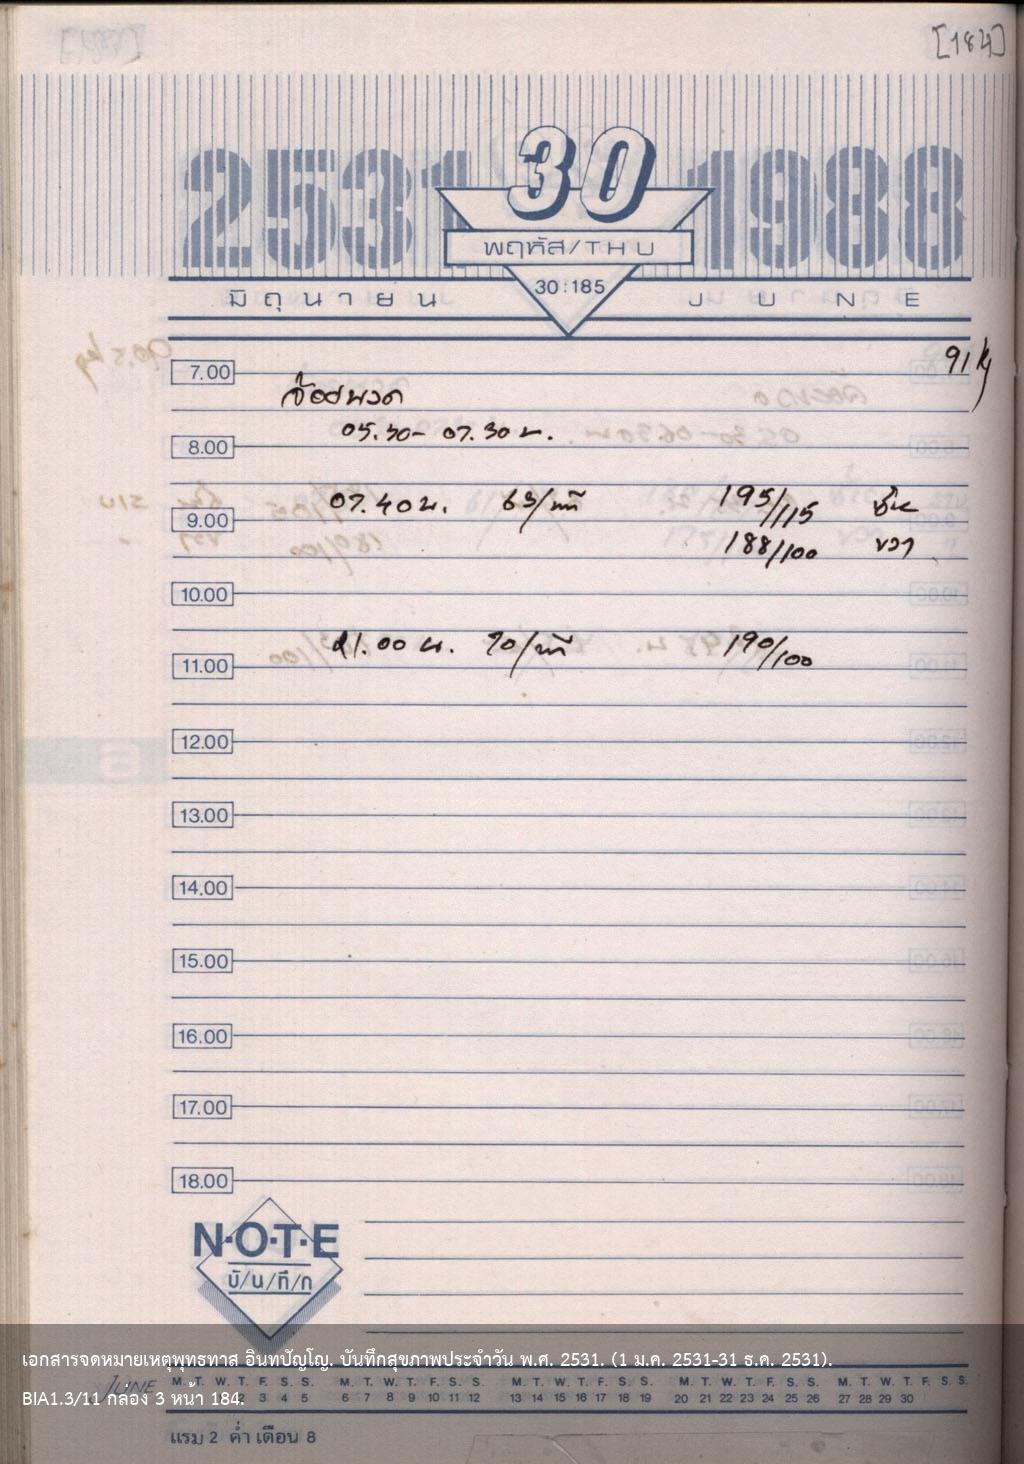 [184]
2531 30 1988
พฤหัส/THU
30:185
มิถุนายน JUNE
91 kg
7.00
05.30- 07.30 น.
8.00
07.40 น. 63/นาที 195/115
9.00
188/100 ขวา
10.00
21.00 น. 70/นาที 190/100
11.00
12.00
13.00
14.00
15.00
16.00
17.00
18.00
N·O·T·E
บั/น/ทึ/ก
เอกสารจดหมายเหตุพุทธทาส อินทปัญโญ. บันทึกสุขภาพประจำวัน พ.ศ. 2531. (1 ม.ค. 2531-31 ธ.ค. 2531).
JUNE M. T. W. T. F. S. S. M. T. W. T. F. S. S. M. T. W. T. F. S. S. M. T. W. T. F. S. S. M. T. W. T. F. S. S.
2 3 4 5 6 7 8 9 10 11 12 13 14 15 16 17 18 19 20 21 22 23 24 25 26 27 28 29 30
BIA1.3/11 กล่อง 3 หน้า 184.
แรม 2 ค่ำ เดือน 8